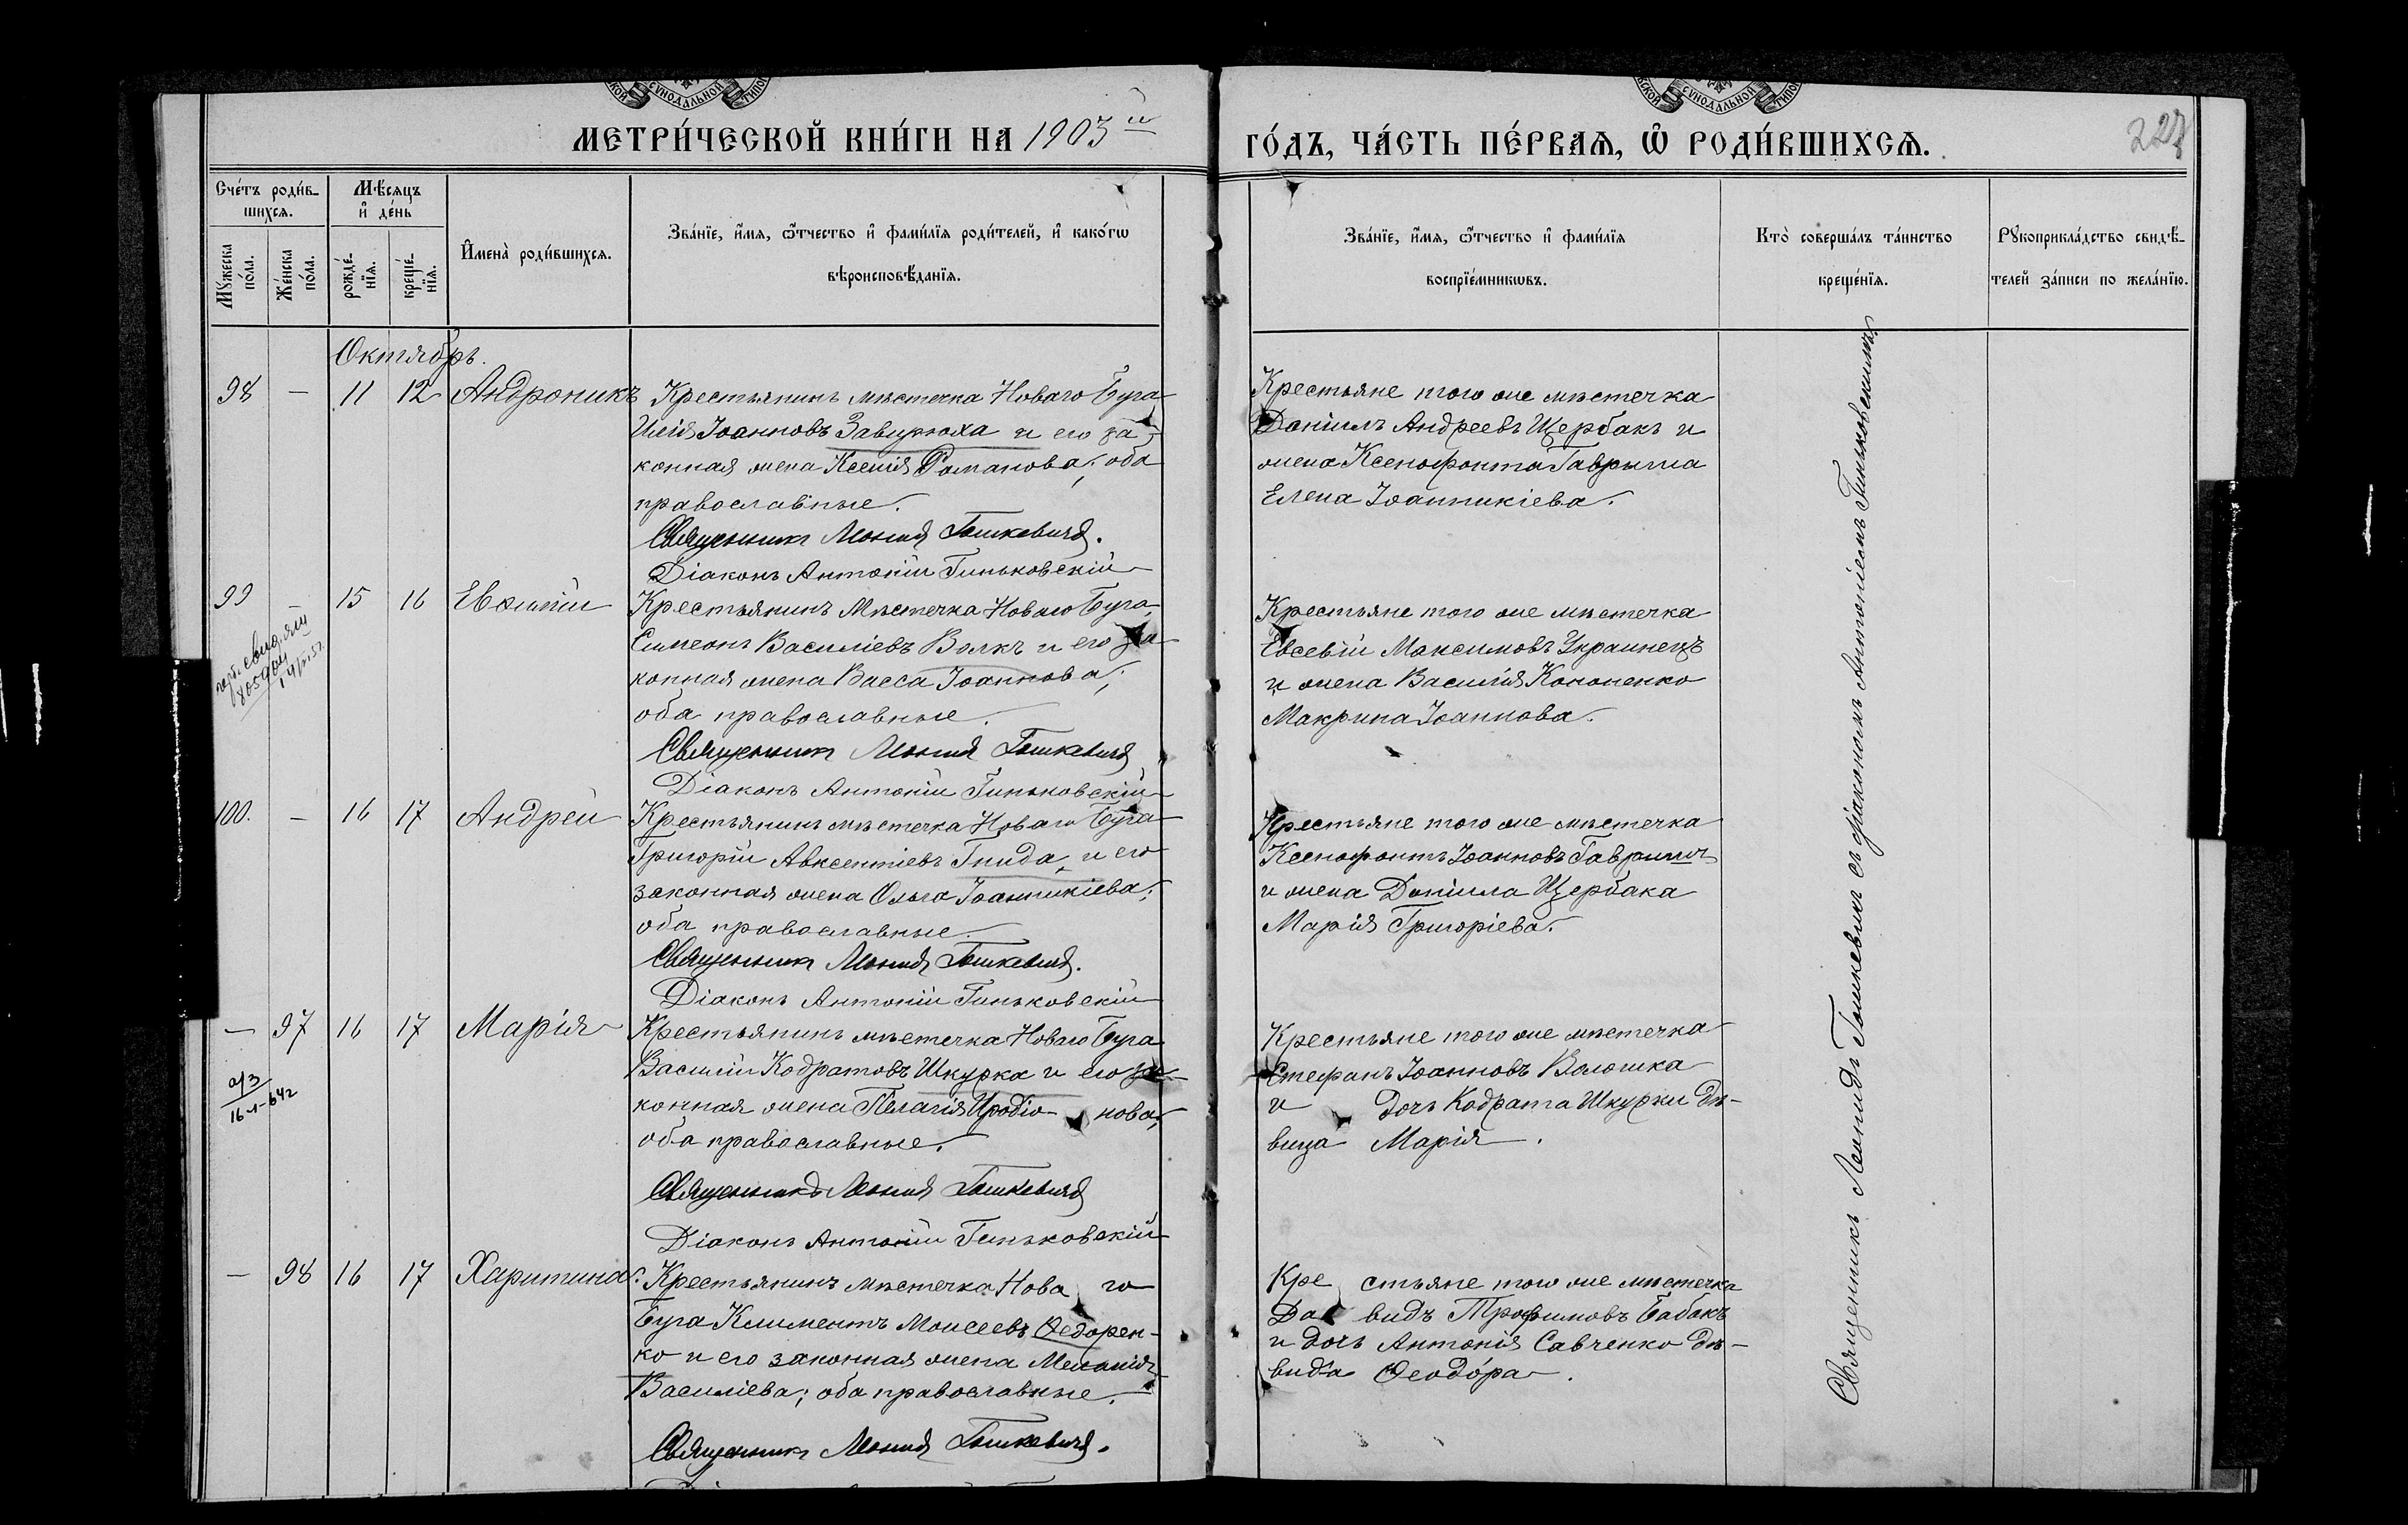 МЕТРИ́ЧЕСКОЙ КНИ́ГИ НА 1903 й
ГО́ДЪ, ЧА́СТЬ ПЕ́РВАѦ, Ѡ҆ РОДИ́ВШИХСѦ.
227
Сче́тъ роди́в-
шихсѧ.
Мѣ́сѧцъ
и҆ де́нь
Мꙋ́жеска
по́ла.
Же́нска
по́ла.
рожде́-
нїѧ.
креще́-
нїѧ.
И҆мена̀ роди́вшихсѧ.
Зва́нїе, и҆́мѧ, ѻ҆́тчество и҆ фами́лїѧ роди́телей, и҆ како́гѡ
вѣроисповѣ́данїѧ.
Зва́нїе, и҆́мѧ, ѻ҆́тчество и҆ фами́лїѧ
воспрїе́мникѡвъ.
Кто̀ соверша́лъ та́инство
креще́нїѧ.
Рꙋкоприкла́дство свидѣ́-
телей за́писи по жела́нїю.
Октябрь.
98 — 11 12 Андроникъ
Крестьянинъ мѣстечка Новаго Буга
Илія Іоанновъ Завирюха и его за-
конная жена Ксенія Романова; оба
православные.
Священникъ Леонид Гошкевичъ.
Діаконъ Антоній Гиньковскій
Крестьяне того же мѣстечка
Даніилъ Андреевъ Щербакъ и
жена Ксенофонта Гаврыша
Елена Іоанникіева.
99 — 15 16 Евѳимій
Крестьянинъ Мѣстечка Новаго Буга
Симеонъ Василіевъ Волкъ и его за-
конная жена Васса Іоаннова;
оба православные.
Священникъ Леонид Гошкевичъ
Діаконъ Антоній Гиньковскій
Крестьяне того же мѣстечка
Евсевій Максимовъ Украинецъ
и жена Василія Кононенко
Макрина Іоаннова.
100. — 16 17 Андрей
Крестьянинъ мѣстечка Новаго Буга
Григорій Авксентіевъ Гнида, и его
законная жена Ольга Іоанникіева;
оба православные.
Священникъ Леонид Гошкевичъ.
Діаконъ Антоній Гиньковскій
Крестьяне того же мѣстечка
Ксенофонтъ Іоанновъ Гаврышъ
и жена Даніила Щербака
Марія Григоріева.
— 97 16 17 Марія
Крестьянинъ мѣстечка Новаго Буга
Василій Кодратовъ Шкурка и его за-
конная жена Пелагія Иродіо- нова;
оба православные.
Священникъ Леонид Гошкевичъ
Діаконъ Антоній Гиньковскій
Крестьяне того же мѣстечка
Стефанъ Іоанновъ Волошка
и дочь Кодрата Шкурки дѣ-
вица Марія.
— 98 16 17 Харитина.
Крестьянинъ мѣстечка Нова го
Буга Климентъ Моисеевъ Ѳедорен-
ко и его законная жена Меланія
Василіева; оба православные.
Священникъ Леонид Гошкевичъ.
Кре стьяне того же мѣстечка
Да видъ Трофимовъ Бабакъ
и дочь Антонія Савченко дѣ-
вица Ѳеодо́ра.
Священникъ Леонидъ Гошкевичъ съ діакономъ Антоніемъ Гиньковскимъ.